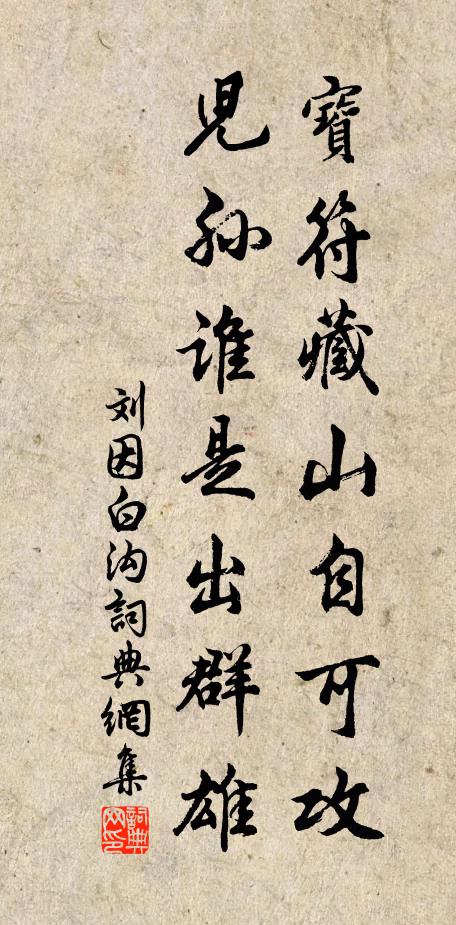 寶符藏山自可攻
兒孫誰是出群雄
刘因白沟詞典網集
詞典网印